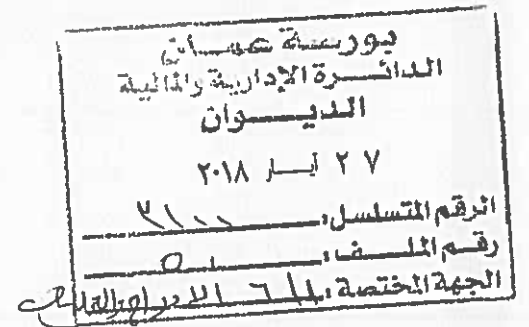 بورصة عمان
الدائرة الإدارية والمالية
الديوان
٢٧ أيار ٢٠١٨
الرقم المتسلسل:
رقم الملف:
الجهة المختصة: